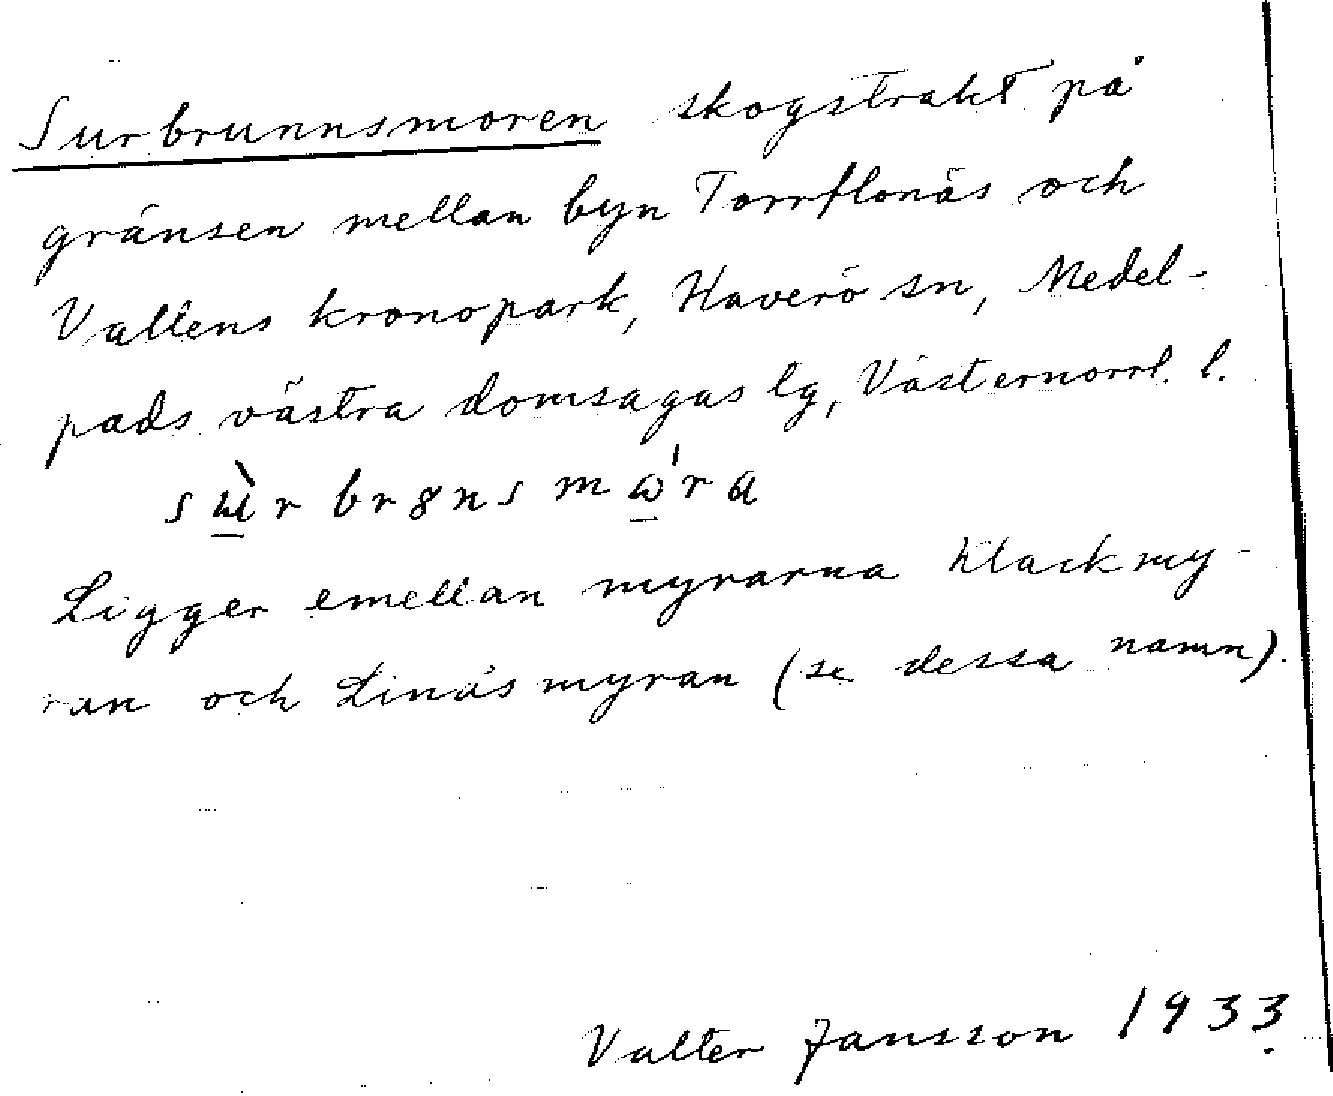 Surbrunnsmoren skogstrakt på
gränsen mellan byn Torrflonäs och
Vallens kronopark, Haverö sn, Medel-
pads västra domsagas lg, Västernorrl. l.
sɯ̲̀r br8ns mώ̲ra
Ligger emellan myrarna Klackmy-
ran och Linåsmyran (se dessa namn).
Valter Jansson 1933.